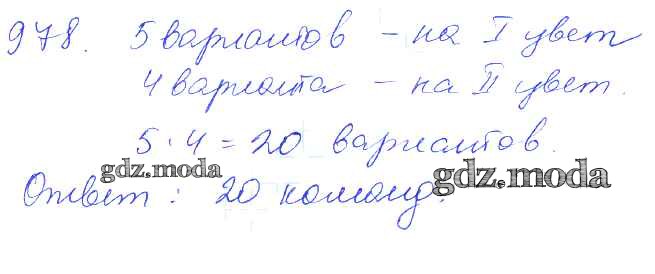 978. 5 вариантов – на I цвет
4 варианта – на II цвет.
5 · 4 = 20 вариантов.
gdz.moda
gdz.moda
Ответ: 20 команд.